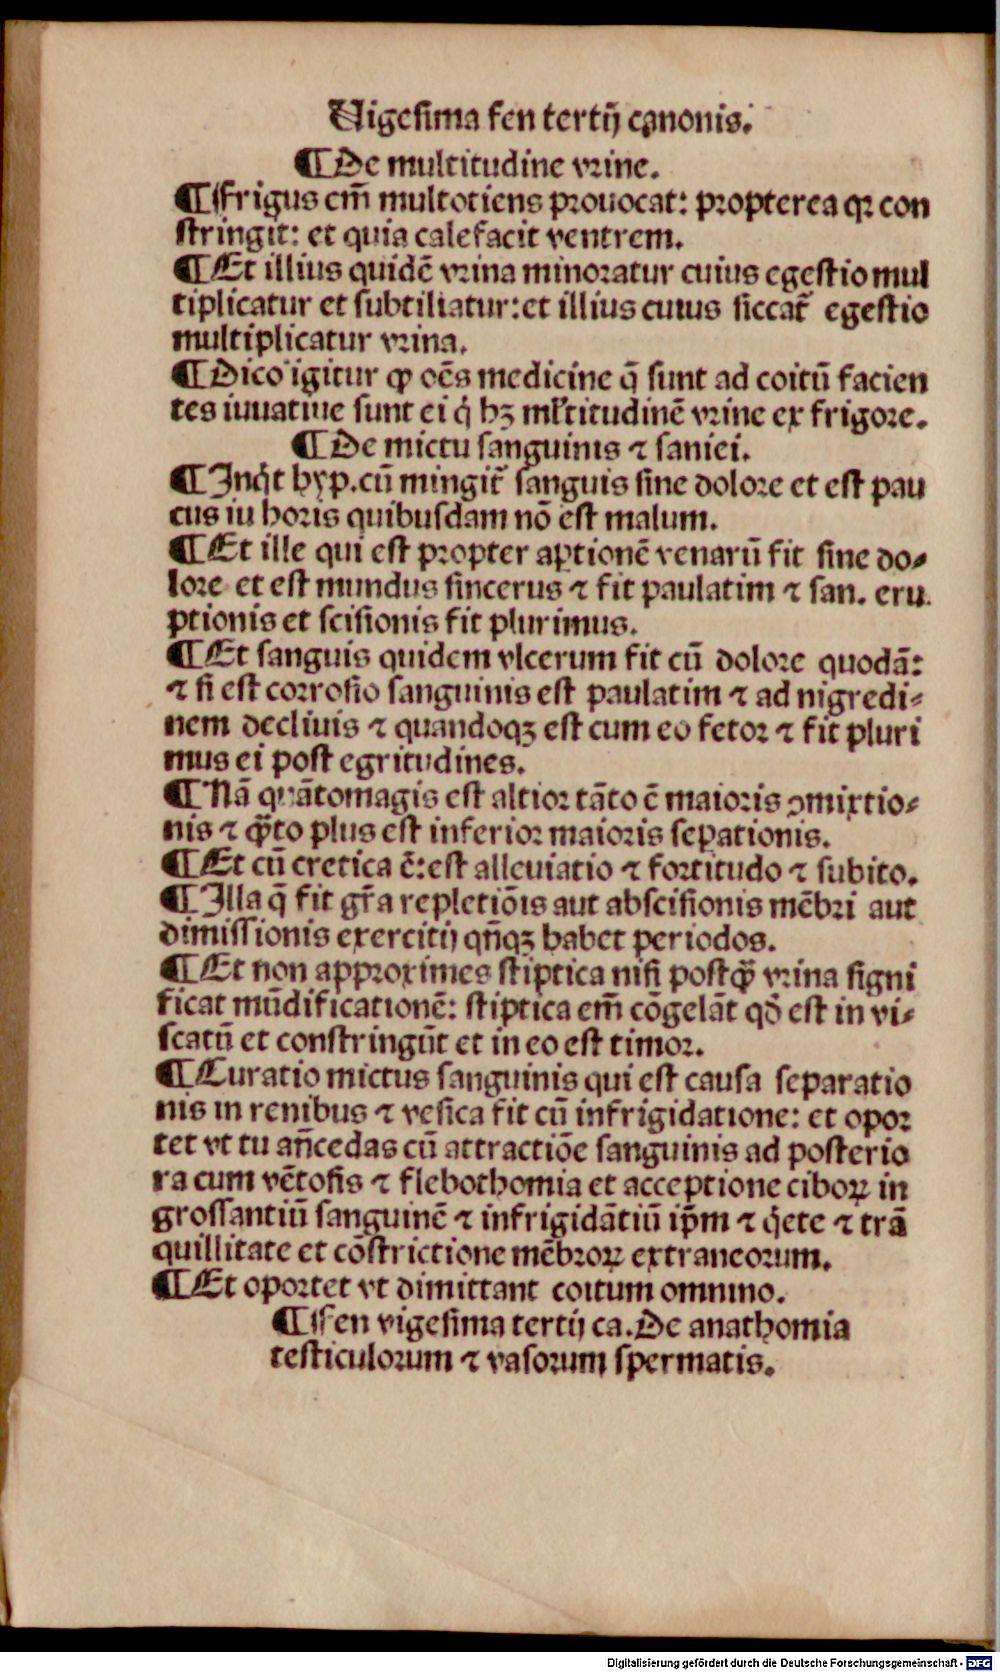 Uigesima fen tertij canonis.
¶ De multitudine vrine.
¶ Frigus em̃ multotiens prouocat: propterea qꝛ con
stringit: et quia calefacit ventrem.
¶ Et illius quidẽ vrina minoratur cuius egestio mul
tiplicatur et subtiliatur: et illius cuius siccat̃ egestio
multiplicatur vrina.
¶ Dico igitur ꝙ oẽs medicine q̃ sunt ad coitũ facien
tes iuuatiue sunt ei q̇ hꝫ ml̃titudinẽ vrine ex frigore.
¶ De mictu sanguinis ⁊ saniei.
¶ Inq̇t hyp. cũ mingit̃ sanguis sine dolore et est pau
cus iu horis quibusdam nõ est malum.
¶ Et ille qui est propter aꝑtionẽ venarũ fit sine do⸗
lore et est mundus sincerus ⁊ fit paulatim ⁊ san. eru.
ptionis et scisionis fit plurimus.
¶ Et sanguis quidem vlcerum fit cũ dolore quodã:
⁊ si est corrosio sanguinis est paulatim ⁊ ad nigredi⸗
nem decliuis ⁊ quandoqꝫ est cum eo fetor ⁊ fit pluri
mus ei post egritudines.
¶ Nã quãtomagis est altior tãto ẽ maioris ↄmixtio⸗
nis ⁊ q̃ꝫto plus est inferior maioris seꝑationis.
¶ Et cũ cretica ẽ: est alleuiatio ⁊ fortitudo ⁊ subito.
¶ Illa q̃ fit gr̃a repletiõis aut abscisionis mẽbri aut
dimissionis exercitij qñqꝫ habet periodos.
¶ Et non approximes stiptica nisi postq̃ꝫ vrina signi
ficat mũdificationẽ: stiptica em̃ cõgelãt qđ est in vi⸗
scatũ et constringũt et in eo est timor.
¶ Curatio mictus sanguinis qui est causa separatio
nis in renibus ⁊ vesica fit cũ infrigidatione: et opor
tet vt tu añcedas cũ attractiõe sanguinis ad posterio
ra cum vẽtosis ⁊ flebothomia et acceptione ciboꝝ in
grossantiũ sanguinẽ ⁊ infrigidãtiũ ip̃m ⁊ q̇ete ⁊ trã
quillitate et cõstrictione mẽbroꝝ extraneorum.
¶ Et oportet vt dimittant coitum omnino.
¶ Fen vigesima tertij ca. De anathomia
testiculorum ⁊ vasorum spermatis.
Digitalisierung gefördert durch die Deutsche Forschungsgemeinschaft - DFG